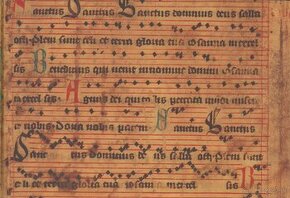 Sanctus Sanctus Sanctus dominus deus saba
oth Pleni sunt celi et terra gloria tua osanna in excel
sis Benedictus qui venit in nomine domini osanna
in excel sis Agnus dei qui tollis peccata mundi miser
e nobis Dona nobis pacem Sanctus Sanctus
Sanc tus dominus de us saba oth Pleni sunt
celi et terra gloria tua osann in excel sis B